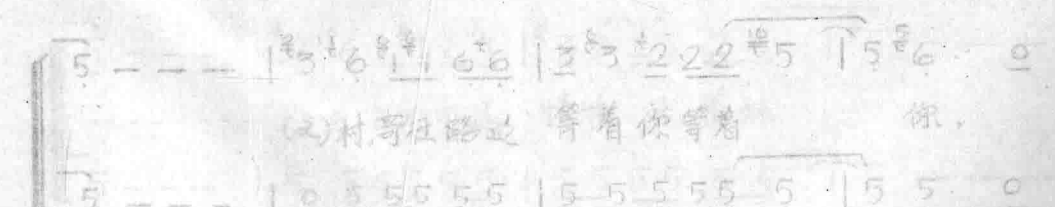 5 — — — | 3 6 1 1 6 6 | 3 3 2 2 2 5 | 5 6 · 0
村 等在路边 等着你等着 你，
5 — — — | 0 5 5 5 5 5 | 5 5 5 5 5 5 | 5 5 · 0